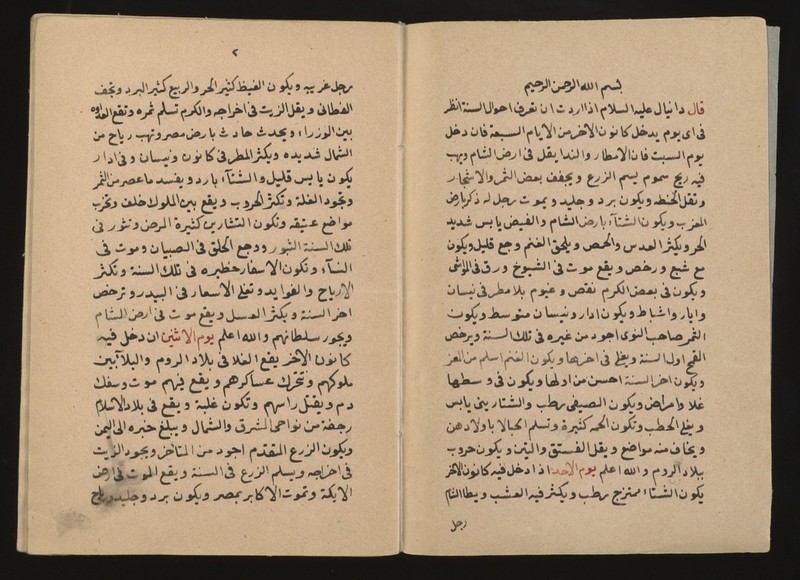 بسم الله الرحمن الرحيم
قال دانيال عليه السلام اذا اردت ان تعرف احوال السنة انظر
في اي يوم يدخل كانون الاخر من الايام السبعة فان دخل
يوم السبت فان الامطار والندا يقل في ارض الشام ويهب
فيه ريح سموم يسم الزرع ويجفف بعض الثمر والاشجار
وتقل الحنطه ويكون برد وجليد ويموت رجل له ذكر بارض
المغرب ويكون الشتآء بارض الشام والقيض يابس شديد
الحر ويكثر العدس والحمص ويلحق الغنم وجع قليل ويكون
مع شبع ورخص ويقع موت في الشيوخ ورق في المواشى
ويكون في بعض الكرم نقص وغيوم بلا مطر في نيسان
وايار واشباط ويكون ادار ونيسان متوسط ويكون
الثمر صاحب النوى اجود من غيره في تلك السنة ويرخص
القمح اول السنة ويغلى في اخرها ويكون الغنم اسلم من المعز
ويكون اخر السنة احسن من اولها ويكون في وسطها
غلا وامراض ويكون الصيفى رطب والشتاء ينى يابس
ويغلى الحطب وتكون الحمه كثيرة وتسلم الحبالا باولادهن
ويخاف منه مواضع ويقل الفستق والتين ويكون حروب
ببلاد الروم والله اعلم يوم الاحد اذا دخل فيه كانون الاخر
يكون الشتاء ممتزج رطب ويكثر فيه العشب ويطا الشام
رجل
٢
رجل غريب ويكون القيظ كثير الحر والربيع كثير البرد وتجف
القطانى ويقل الزيت في اخراجه والكرم تسلم ثمره وتقع العداوه
بين الوزراء ويحدث حادث بارض مصر وتهب رياح من
الشمال شديده ويكثر المطر في كانون ونيسان وفي ادار
يكون يابس قليل والشتآء بارد ويفسد ما عصر من الثمر
وتجود الغلة وتكثر الحروب ويقع بين الملوك خلف وتخرب
مواضع عتيقه وتكون التشارين كثيرة المرض وتثور في
تلك السنة الثبور ووجع الحلق في الصبيان وموت في
النسآء وتكون الاسفار خطيره في تلك السنة وتكثر
الارياح والفوايد وتغلى الاسعار في البيدر وترخص
اخر السنة ويكثر العسل ويقع موت في ارض الشام
ويجور سلطانهم والله اعلم يوم الاثنين ان دخل فيه
كانون الاخر يقع الغلا في بلاد الروم والبلا بين
ملوكهم وتتحرك عساكرهم ويقع فيهم موت وسفك
دم ويقتل راسهم وتكون غلبة ويقع في بلاد الاسلام
رجفة من نواحى المشرق والشمال ويبلغ خبره الى اليمن
ويكون الزرع المتقدم اجود من المتاخر ويجود الزيت
في اخراجه ويسلم الزرع في السنة ويقع الموت في ارض
الايكة وتموت الاكابر بمصر ويكون برد وجليد ورياح